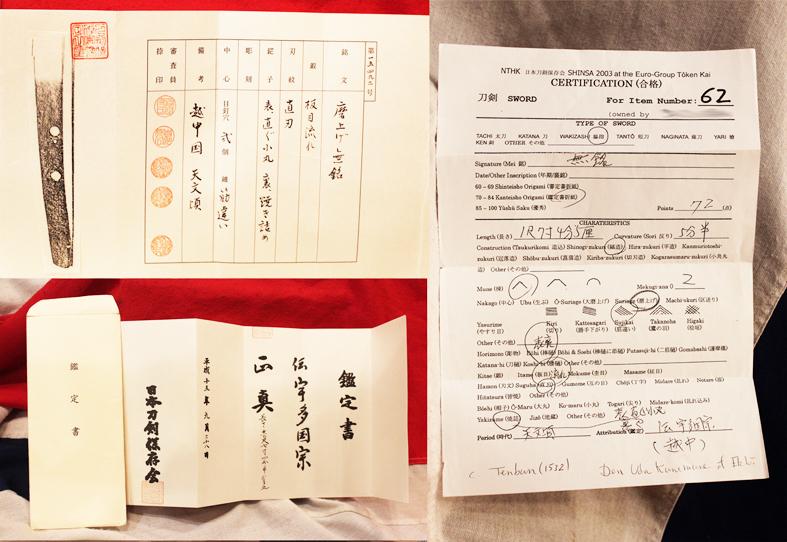 第一五四九二号
銘文 磨上げ無銘
鍛 板目流れ
刃紋 直刃
鋩子 表直ぐ小丸 裏焼き詰め
彫刻
中心 目釘穴 弐個 鑢 い筋違い
備考 越中国 天文頃
審査員
捺印
鑑定書
鑑定書
伝宇多国宗
正真
平成十五年九月二八日
日本刀剣保存会
NTHK 日本刀剣保存会 SHINSA 2003 at the Euro-Group Tōken Kai
CERTIFICATION (合格)
刀剣 SWORD For Item Number: 62
(owned by
TYPE OF SWORD
TACHI 太刀 KATANA 刀 WAKIZASHI 脇指 TANTŌ 短刀 NAGINATA 薙刀 YARI 槍
KEN 剣 OTHER その他
Signature (Mei 銘) 無銘
Date/Other Inscription (年期/裏銘)
60 – 69 Shinteisho Origami (審定書折紙)
70 – 84 Kanteisho Origami (鑑定書折紙)
85 – 100 Yūshū Saku (優秀) Points 72 (点)
CHARATERISTICS
Length (長さ) 1尺7寸4分5厘 Curvature (Sori 反り) 5分半
Construction (Tsukurikomi 造込) Shinogi-zukuri (鎬造) Hira-zukuri (平造) Kanmuriotoshi-
zukuri (冠落造) Shōbu-zukuri (菖蒲造) Kiriha-zukuri (切刃造) Kogarasumaru-zukuri (小烏丸
造) Other (その他)
Mune (棟) Mekugi-ana () 2
Nakago (中心) Ubu (生ぶ) Ō-Suriage (大磨上げ) Suriage (磨上げ) Machi-okuri (区送り)
Yasurime Kiri Kattesagari Sujikai Takanoha Higaki
(やすり目) (切り) (勝手下がり) (筋違い) (鷹の羽) (桧垣)
Other (その他)
Horimono (彫物) Bōhi (棒樋) Bōhi & Soehi (棒樋に添樋) Futasuji-hi (二筋樋) Gomabashi (護摩橋)
Katana-hi (刀樋) Koshi-hi (腰樋) Other (その他)
Kitae (鍛) Itame (板目) 流れ Mokume (杢目) Masame (柾目)
Hamon (刃文) Suguha (直刃) Gunome (互の目) Chōji (丁子) Midare (乱れ) Notare (湾)
Hitatsura (皆焼) Other (その他)
Bōshi (帽子) Ō-Maru (大丸) Ko-maru (小丸) Togari (尖り) Midare-komi (乱れ込み)
Yakizume (焼詰) Jizō (地蔵) Other (その他)
Period (時代) 天文頃 Attribution (鑑定) 伝宇多国宗
(越中)
Tenbun (1532) Den Uda Kunimune of